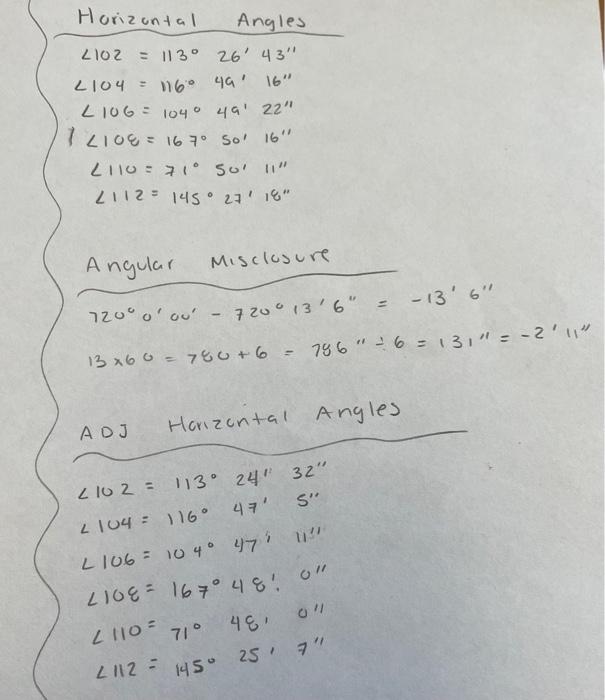 Horizontal Angles
∠102 = 113° 26' 43"
∠104 = 116° 49' 16"
∠106 = 104° 49' 22"
∠108 = 167° 50' 16"
∠110 = 71° 50' 11"
∠112 = 145° 27' 18"
Angular Misclosure
720° 0' 00' - 720° 13' 6" = -13' 6"
13 x 60 = 780 + 6 = 786" ÷ 6 = 131" = -2' 11"
ADJ Horizontal Angles
∠102 = 113° 24" 32"
∠104 = 116° 47' 5"
∠106 = 104° 47' 11"
∠108 = 167° 48' 0"
∠110 = 71° 48' 0"
∠112 = 145° 25' 7"